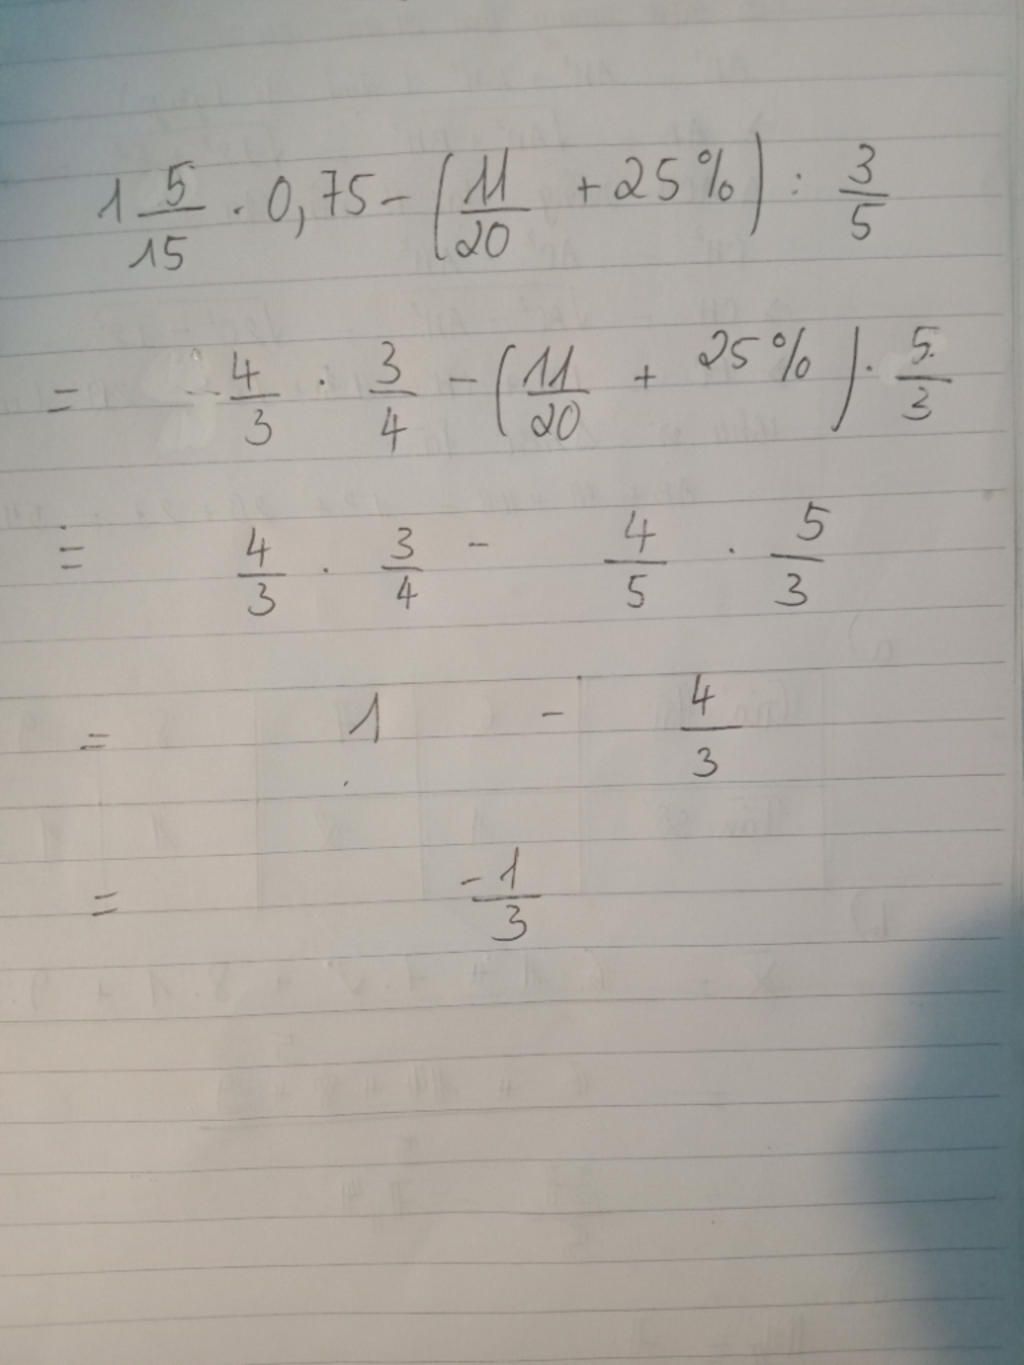 1 5/15 . 0,75 - (11/20 + 25%) : 3/5
= 4/3 . 3/4 - (11/20 + 25%) . 5/3
= 4/3 . 3/4 - 4/5 . 5/3
= 1 - 4/3
= -1/3